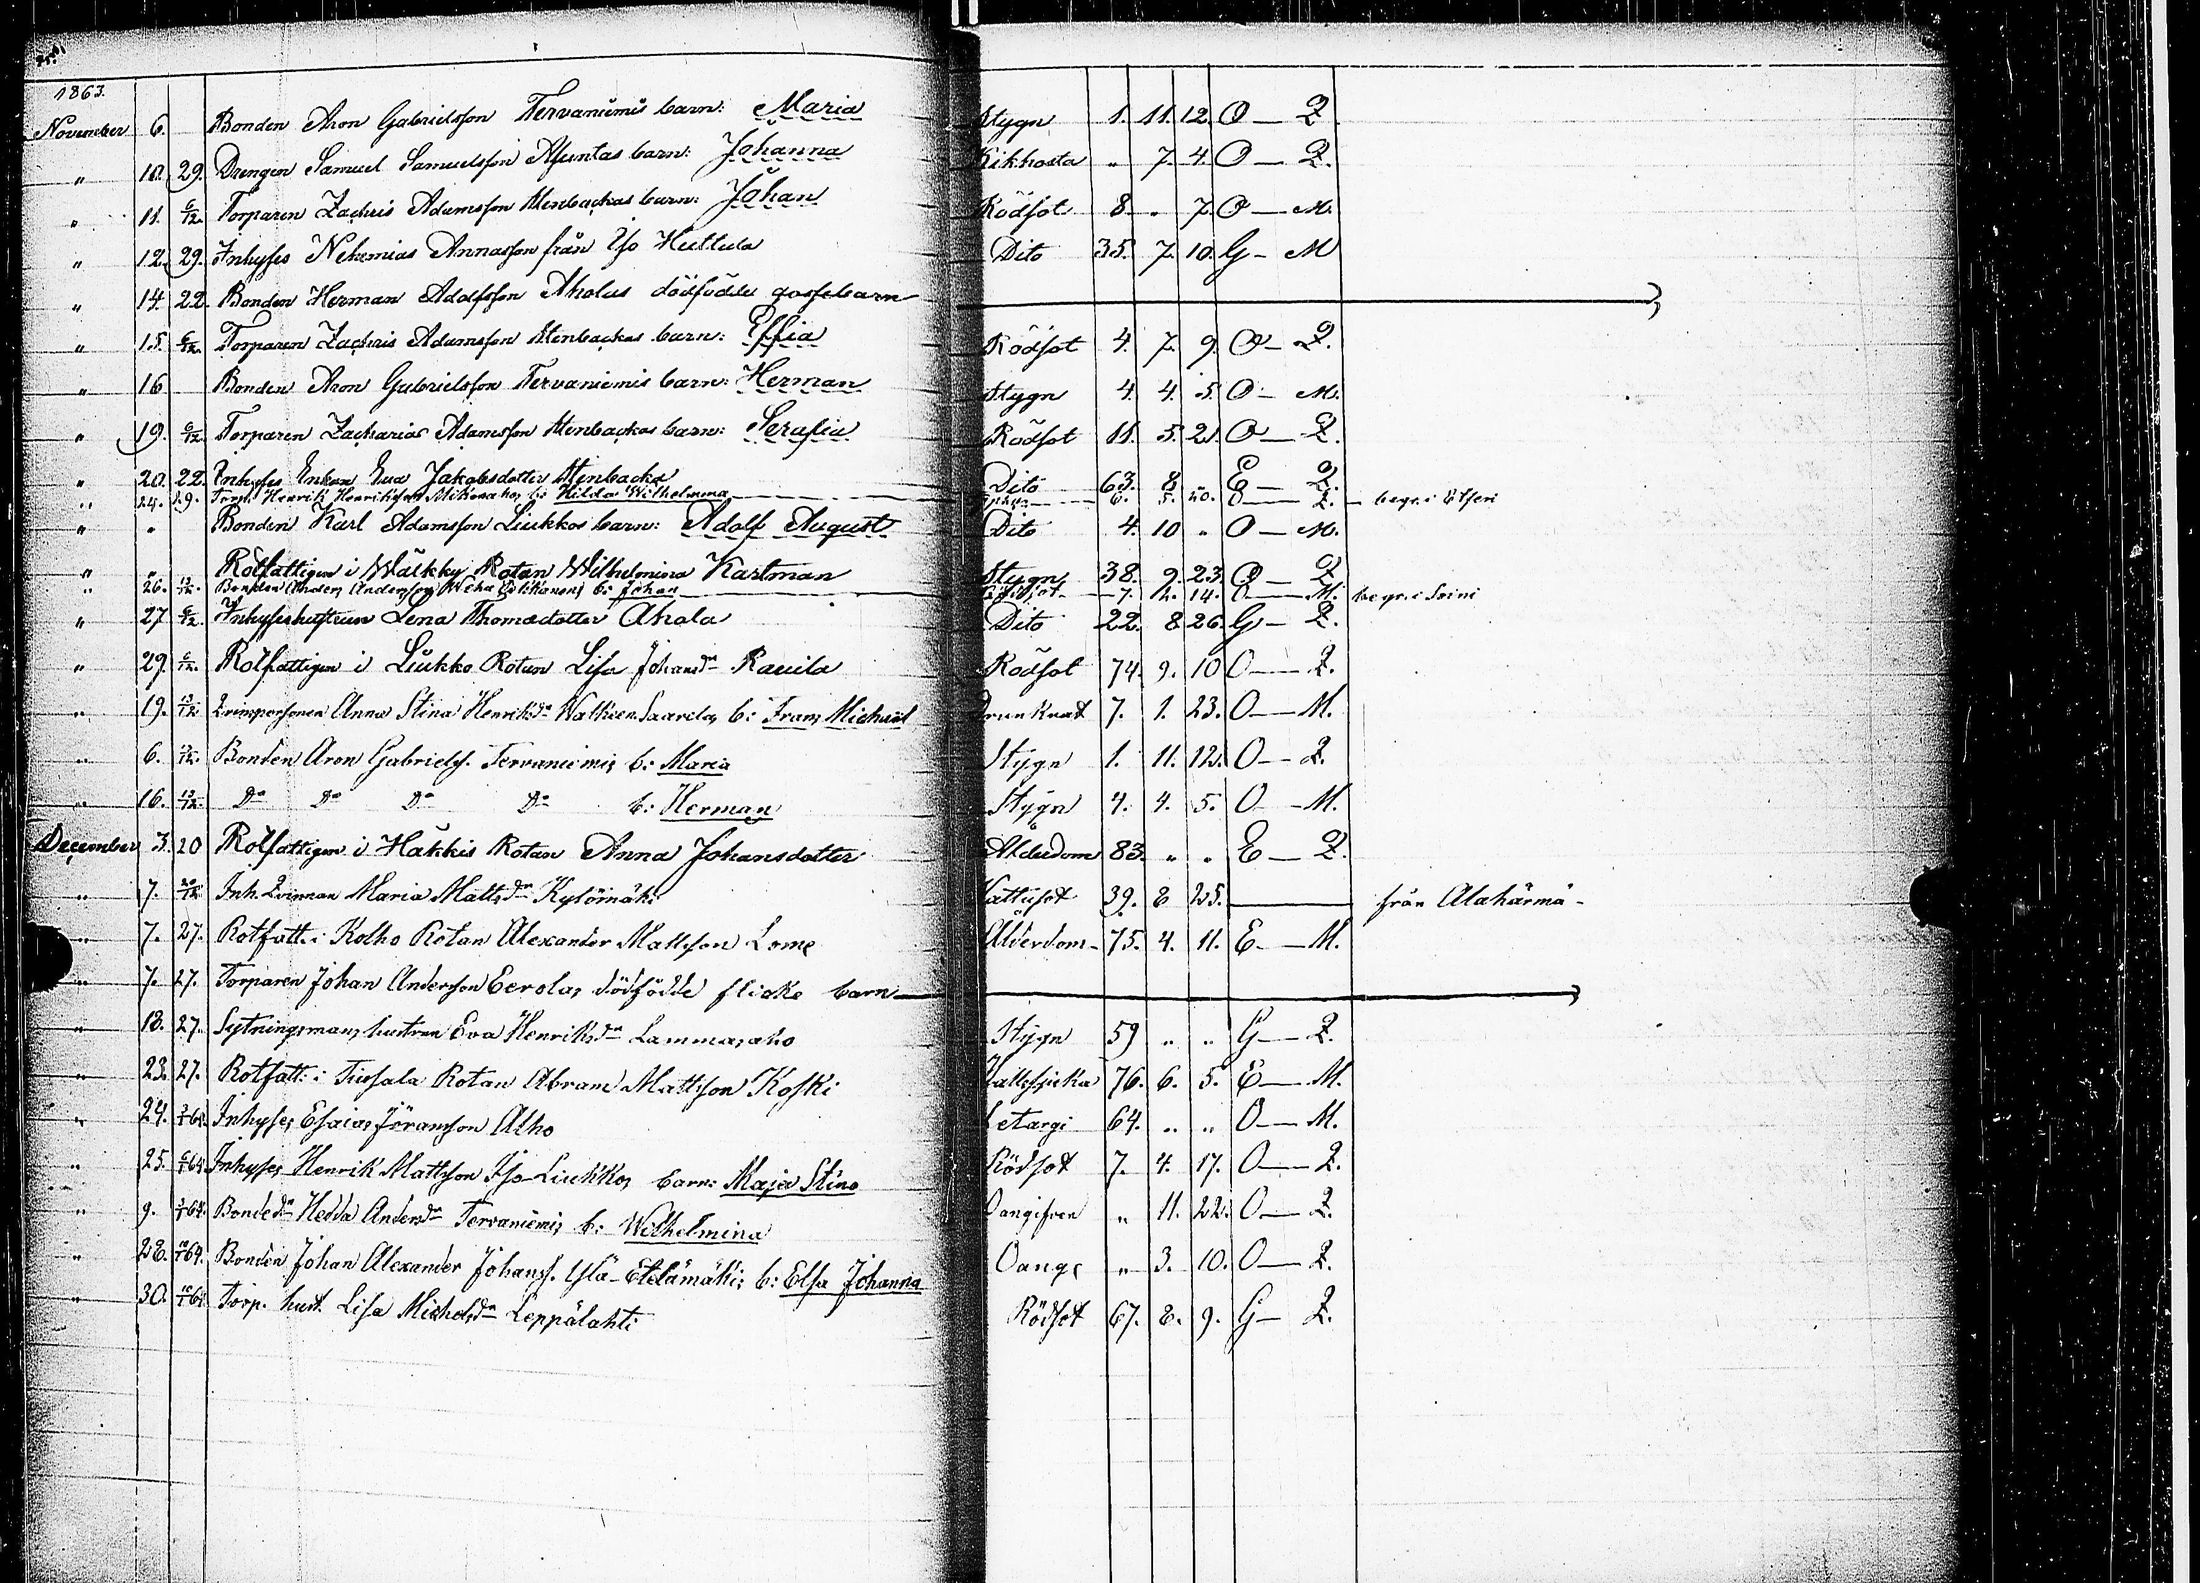 1863.
November 6. Bonden Aron Gabrielsson Tervaniemis barn: Maria Stygn 1. 11. 12. O — Q.
" 10. 29. Drengen Samuel Samuelsson Asuntas barn: Johanna Kikhosta " 7. 4. O — Q.
" 11. 6/12. Torparen Zachris Adamsson Stenbackas barn: Johan Rödsot 8. " 7. O — M.
" 12. 29. Inhyses Nehemias Annasson från Iso Huttula Dito 35. 7. 10. G — M
" 14. 22. Bonden Herman Adolfsson Aholas dödfödde gossebarn
" 15. 6/12. Torparen Zachris Adamsson Stenbackas barn: Effia Rödsot 4. 7. 9. O — Q.
" 16 Bonden Aron Gabrielsson Tervaniemis barn: Herman Stygn 4. 4. 5. O — M.
" 19. 6/12. Torparen Zacharias Adamsson Stenbackas barn: Serafia Rödsot 11. 5. 21. O — Q.
" 20. 22. Inhyses Enkan Eva Jakobsdotter Stenbacka Dito 63. 8. " E — Q.
" 24. 29. Torp. Henrik Henriksson b: Hilda Wilhelmina 6. 5. 20. O — Q. begr. i Etseri
" " Bonden Karl Adamsson Liukkos barn: Adolf August Dito 4. 10 " O — M.
" " Rotfattigen i Wälkky Rotan Wilhelmina Kastman Stygn 38. 9. 23. O — Q
" 26. 13/12. Bonden Anders Andersson b: Johan Rödsot 7. 11. 14. O — M. begr. i Soini
" 27 6/12. Inhyseshustrun Lena Thomasdotter Ahola Dito 22. 8 26. G — Q.
" 29. 6/12. Rotfattigen i Liukko Rotan Lisa Johansdr Rauila Rödsot 74. 9. 10 O — Q.
" 19. 13/12. Qvinspersonen Anna Stina Henriksdr Walkeen Saarelas b: Frans Michael Drunknat 7. 1. 23. O — M.
" 6. 13/12. Bonden Aron Gabriels. Tervaniemis b: Maria Stygn 1. 11. 12. O — Q.
" 16. 13/12. Do Do Do Do b: Herman Stygn 4. 4. 5. O — M.
December 3. 20 Rotfattigen i Hakkis Rotan Anna Johansdotter Ålderdom 83. " " E — Q.
" 7. 20/12 Inh. Qvinnan Maria Mattsdr Kylömäki Vattusot 39. 8 25. från Alahärmä -
" 7. 27. Rotfatt. i Kolho Rotan Alexander Mattsson Lome Ålderdom 75. 4. 11. E — M.
" 7. 27. Torparen Johan Andersson Eerolas dödfödde flicke barn
" 18. 27. Sytningsmans hustrun Eva Henriksdr Lammasaho Stygn 59 " " G — Q.
" 23. 27. Rotfatt. i Tuosala Rotan Abram Mattsson Koski Hallsjuka 76. 6. 5. E — M.
" 24. 2/1 64. Inhyses Esaias Jöransson Alho Letargi 64. " " O — M.
" 25. 6/1 64. Inhyses Henrik Mattsson Iso-Liukkos barn: Maja Stina Rödsot 7. 4. 17. O — Q.
" 9. 3/1 64. Bondedr Hedda Andersdr Tervaniemis b: Wilhelmina Oangifven " 11. 22. O — Q.
" 28. 10/1 64. Bonden Johan Alexander Johans. Ylä-Etelämäkis b: Elsa Johanna Oangs " 3. 10. O — Q.
" 30. 10/1 64. Torp. hust. Lisa Michelsdr Leppälahti Rödsot 67. 8. 9. G — Q.